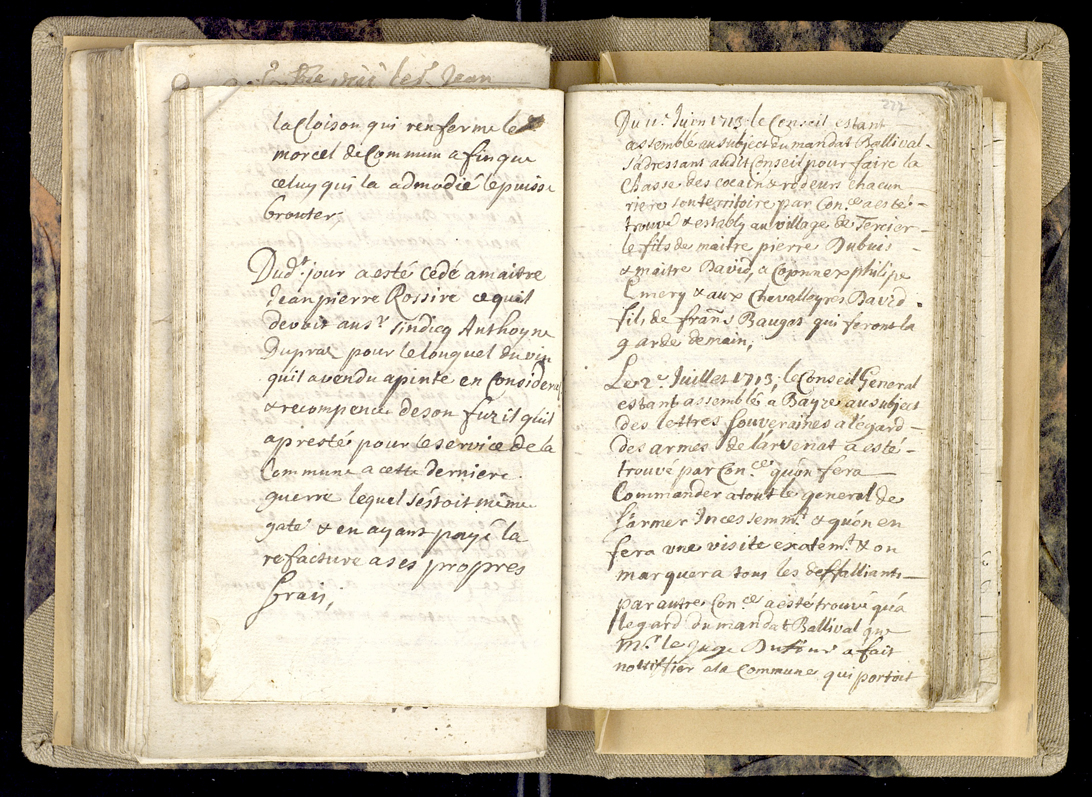 la Cloison qui renferme le
morcel de Commun afin que
celuy qui la admodié le puisse
brouter;
Dud.t jour a esté cedé a maitre
Jean pierre Rossire ce quil
devoit au s.r sindicq Anthoyne
Dupraz pour le longuel du vin
quil a vendu a pinte en Consider
& recompence de son fuzil quil
a presté pour le service de la
Commune a cette derniere
guerre lequel sestoit même
gaté & en ayant payé la
refacture a ses propres
frais;
272
Du 11.e Juin 1713 le Conseil estant
assemblé au subject du mandat Ballival
sadressant audit Conseil pour faire la
Chasse des cocain & rodeurs chacun
riere son territoire par Con.ce a esté
trouvé & estably au village de Tercier
le fils de maitre pierre Dubuis
& maitre David, a Philipe
Emery & aux Chevalleyres David
fils de frans Baugos qui feront la
garde demain;
Le 2.e Juillet 1713, le Conseil General
estant assemblé a Bayze au subject
des lettres souveraines a légard
des armes de larsenat a esté
trouvé par Con.ce quon fera
Commander a tout le general de
sarmer Incessemm.t & quon en
fera une visite exatem.t & on
marquera tous les deffalliants
par autre Con.ce a esté trouvé qua
legard du mandat Ballival que
m.r le juge Dufour a fait
nottiffier a la Commune qui portoit